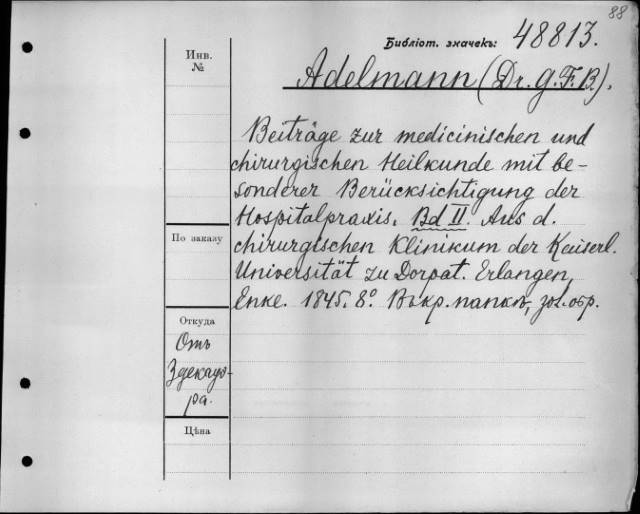 88
Библіот. значекъ: 48813.
Инв.
№
Adelmann (Dr. G. F. B.).
Beiträge zur medicinischen und
chirurgischen Heilkunde mit be-
sonderer Berücksichtigung der
Hospitalpraxis. Bd II. Aus d.
По заказу
chirurgischen Klinikum der Kaiserl.
Universität zu Dorpat. Erlangen,
Enke. 1845. 8º. Въ кр. папкѣ, зол. обр.
Откуда
Отъ
Здекауэ-
ра.
Цѣна